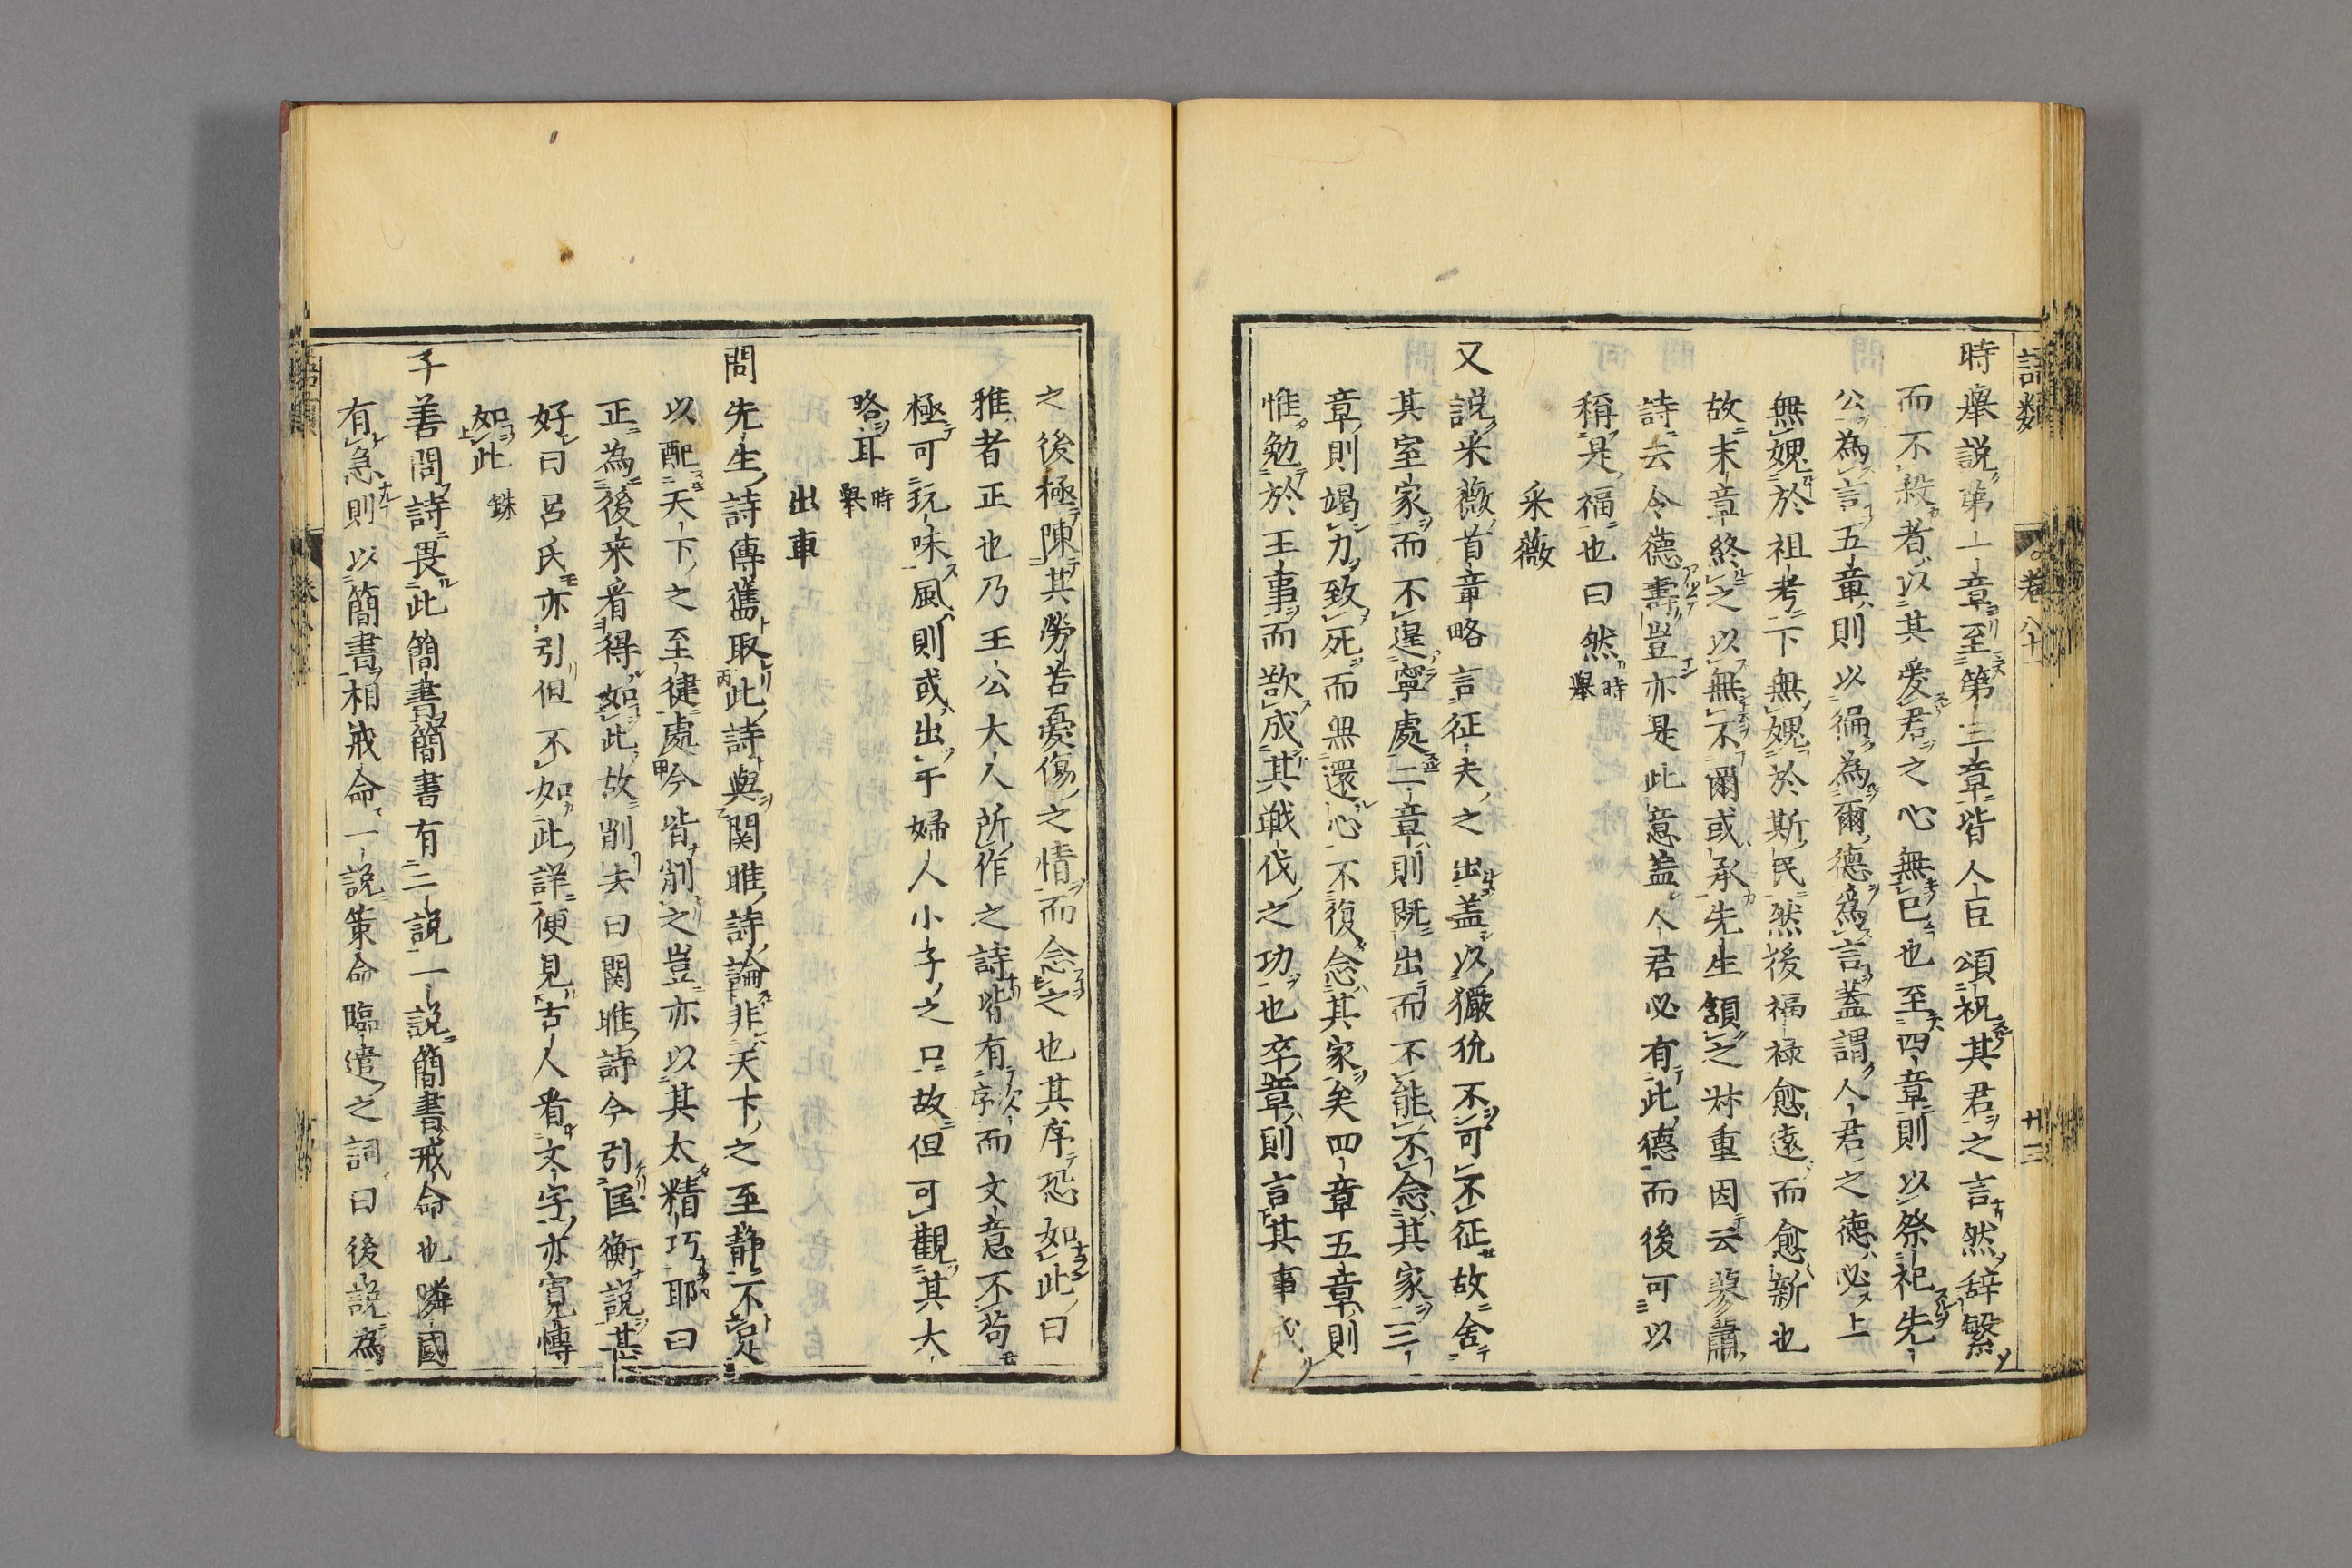 語類
卷八十一
廿三
時舉説第一章至第三章皆人臣頌祝其君之言然辞繁
而不殺者以其愛君之心無已也至四章則以祭祀先
公為言五章則以徧為爾德為言蓋謂人君之德必上
無媿於祖考下無媿於斯民然後福禄愈遠而愈新也
故末章終之以無不爾或承先生頷之时重因云蓼蕭
詩云令德壽豈亦是此意蓋人君必有此德而後可以
稱是福也曰然時舉
采薇
又説采薇首章略言征夫之出蓋以玁狁不可不征故舍
其室家而不遑寧處二章則既出而不能不念其家三
章則竭力致死而無還心不復念其家矣四章五章則
惟勉於王事而欲成其戰伐之功也卒章則言其事成
之後極陳其勞苦憂傷之情而念之也其序恐如此曰
雅者正也乃王公大人所作之詩皆有次序而文意不苟
極可玩味風則或出于婦人小子之口故但可觀其大
略耳時舉
出車
問先生詩傳舊取此詩與関雎詩論非天下之至静不足
以配天下之至健處今皆削之豈亦以其太精巧耶曰
正為後来看得如此故削去曰関雎詩今引匡衡説甚
好曰呂氏亦引但不如此詳便見古人看文字亦寛博
如此銖
子善問詩畏此簡書簡書有二説一説簡書戒命也隣國
有急則以簡書相戒命一説策命臨遣之詞曰後説為